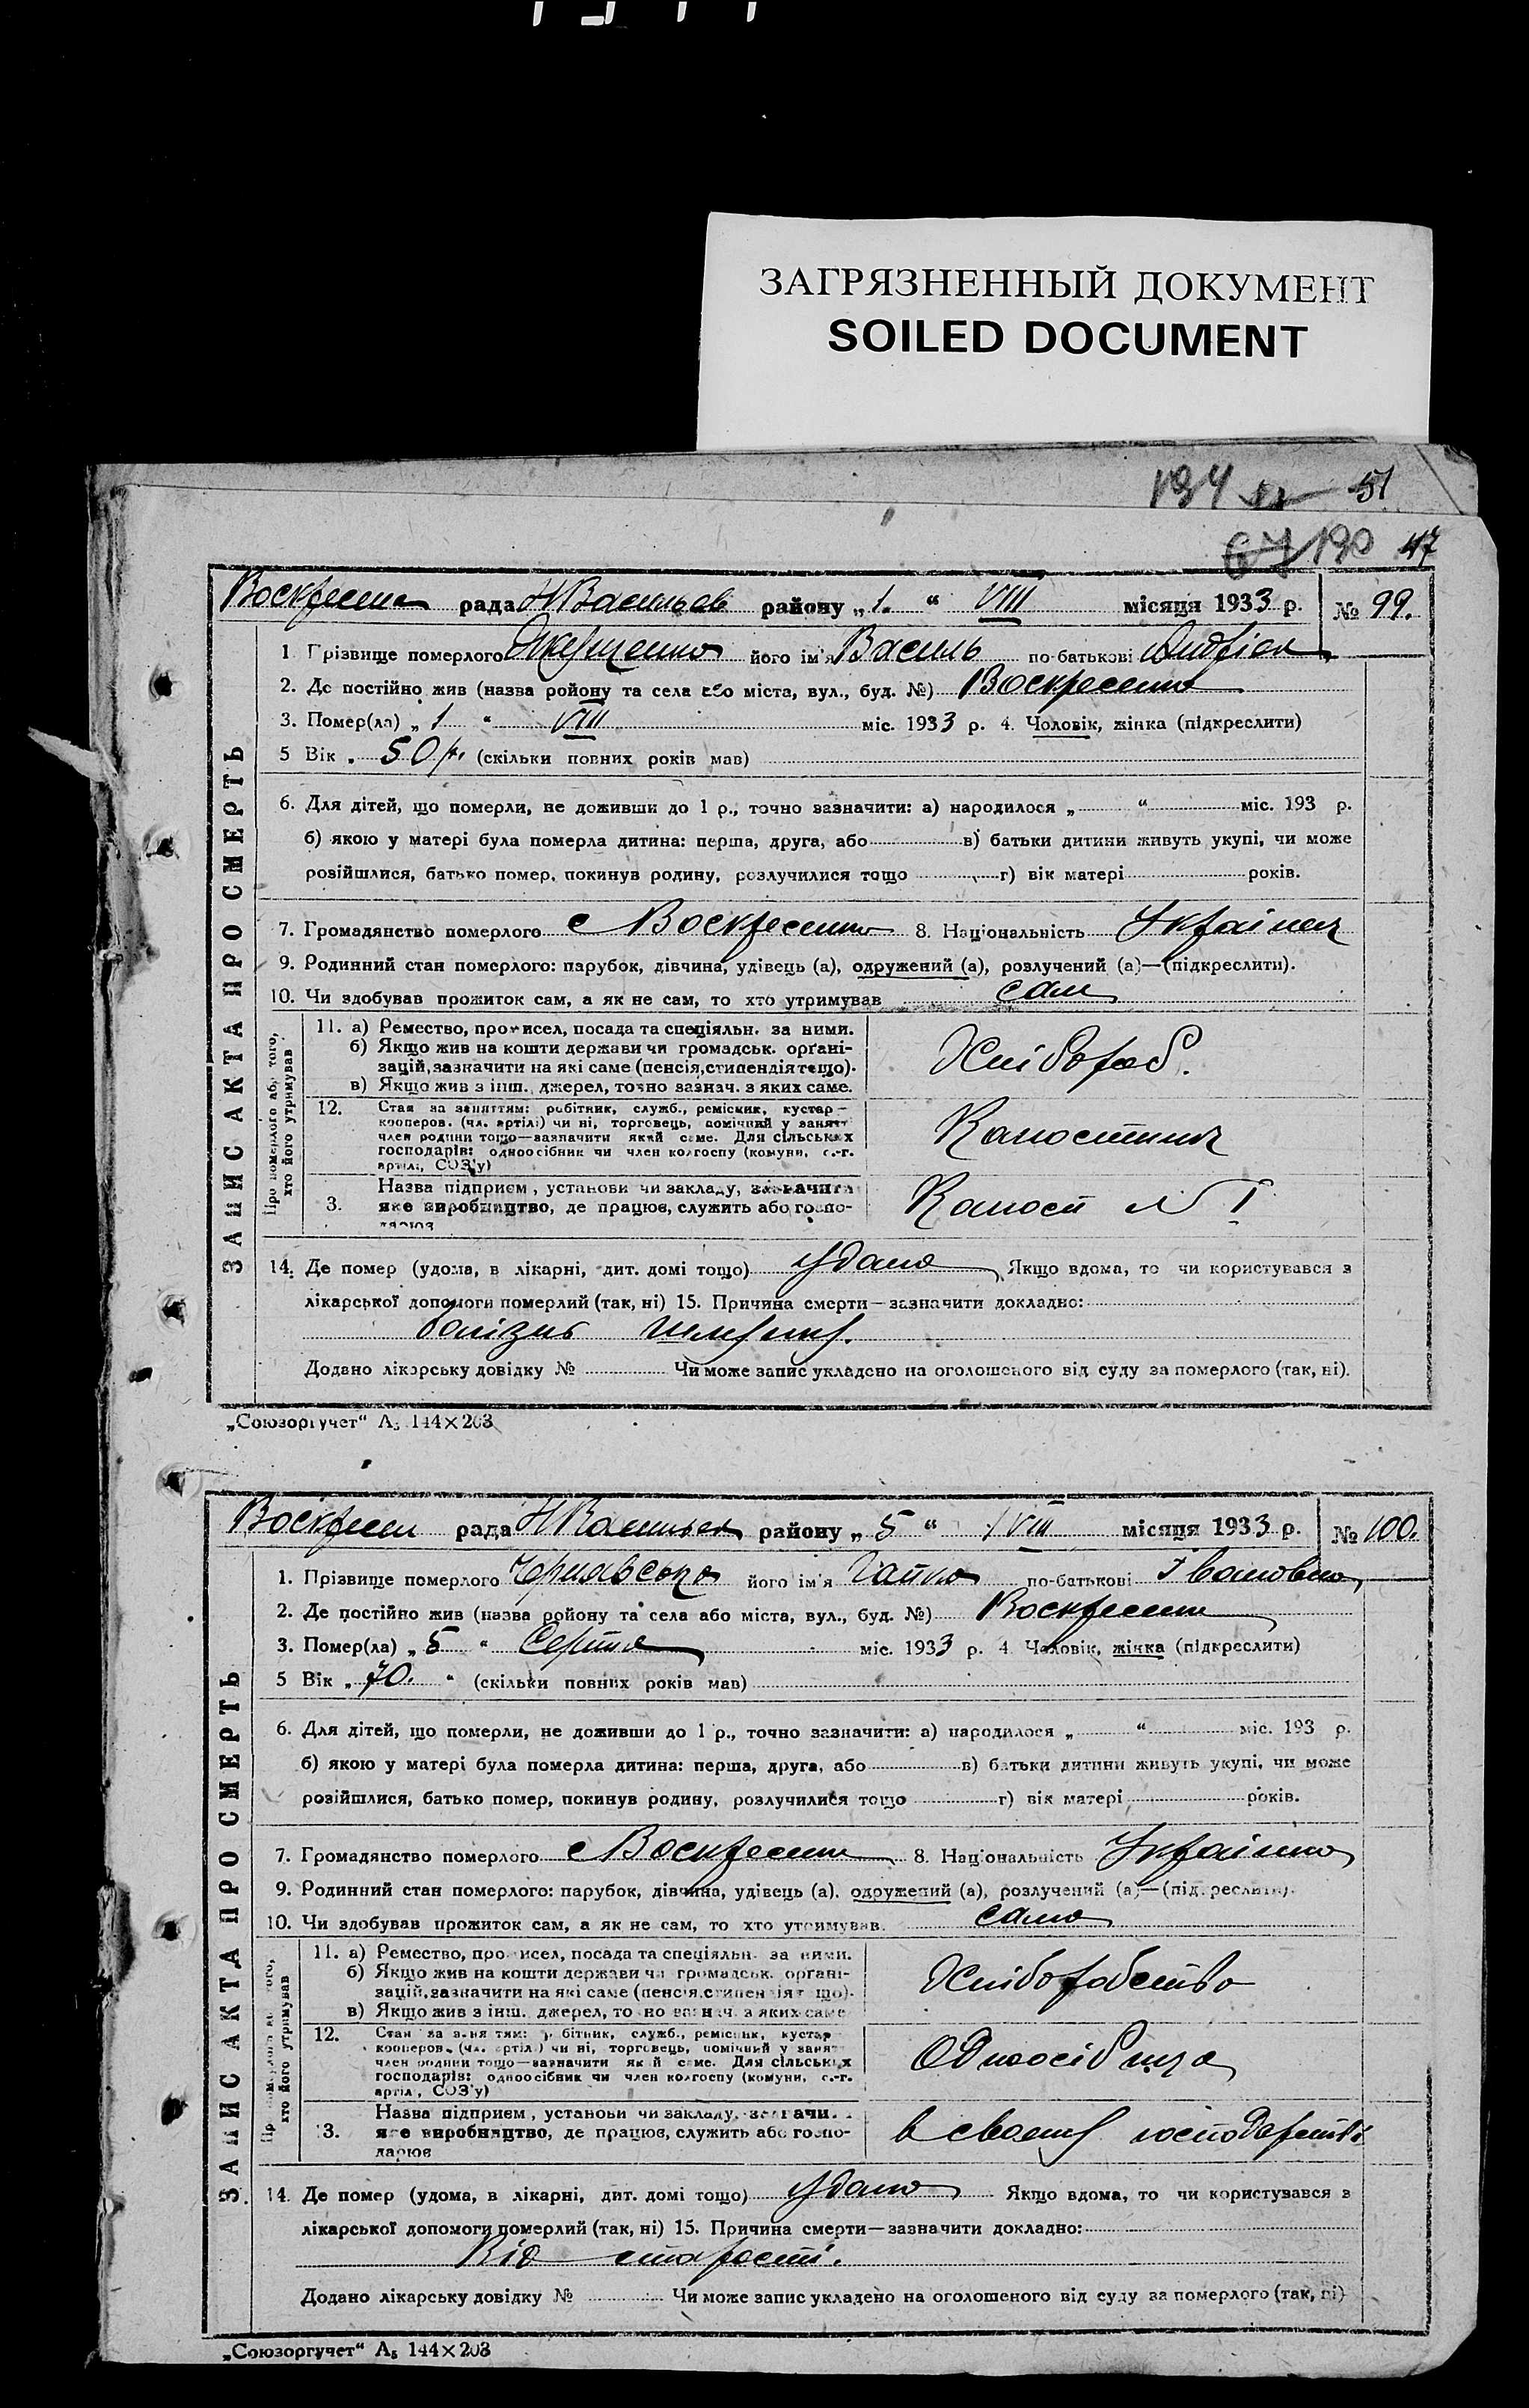 ЗАГРЯЗНЕННЫЙ ДОКУМЕНТ
SOILED DOCUMENT
194 51
67 190 47
рада району „ 1. “ VIII місяця 1933 р. № 99.
ЗАПИС АКТА ПРО СМЕРТЬ
1 Прізвище померлого його ім'я Василь по-батькові
2. Де постійно жив (назва ройону та села або міста, вул., буд. №)
3. Помер(ла) „ 1 “ VIII міс. 1933 р. 4. Чоловік, жінка (підкреслити)
5 Вік „ 50 р. (скільки повних років мав)
6. Для дітей, що померли, не доживши до 1 р., точно зазначити: а) народилося „ “ міс. 193 р.
б) якою у матері була померла дитина: перша, друга, або в) батьки дитини живуть укупі, чи може
розійшлися, батько помер, покинув родину, розлучилися тощо г) вік матері років.
7. Громадянство померлого с 8. Національність Українец
9. Родинний стан померлого: парубок, дівчина, удівець (а), одружений (а), розлучений (а)—(підкреслити).
10. Чи здобував прожиток сам, а як не сам, то хто утримував сам
Про померлого або того, хто його утримував
11. а) Ремество, промисел, посада та спеціяльн. за ними.
б) Якщо жив на кошти держави чи громадськ. органі-
зацій, зазначити на які саме (пенсія, стипендія тощо).
в) Якщо жив з інш. джерел, точно зазнач. з яких саме.
Хлібороб.
12. Стан за заняттям: робітник, служб., ремісник, кустар-
кооперов. (чл. артілі) чи ні, торговець, помічний у занят
член родини тощо—зазначити який саме. Для сільських
господарів: одноосібник чи член колгоспу (комуни, с.-г.
артілі, СОЗ'у)
3. Назва підприєм, установи чи закладу, зазначити
яке виробництво, де працює, служить або госпо-
дарює
№ 1
14. Де помер (удома, в лікарні, дит. домі тощо) Удома Якщо вдома, то чи користувався з
лікарської допомоги померлий (так, ні) 15. Причина смерти—зазначити докладно:
Додано лікарську довідку № Чи може запис укладено на оголошеного від суду за померлого (так, ні).
„Союзоргучет“ А5 144×203
рада району „ 5 “ VIII місяця 1933 р. № 100.
ЗАПИС АКТА ПРО СМЕРТЬ
1. Прізвище померлого його ім'я по-батькові Івановна
2. Де постійно жив (назва ройону та села або міста, вул., буд. №)
3. Помер(ла) „ 5 “ Серпня міс. 1933 р. 4 Чоловік, жінка (підкреслити)
5 Вік „ 70. “ (скільки повних років мав)
6. Для дітей, що померли, не доживши до 1 р., точно зазначити: а) народилося „ “ міс. 193 р.
б) якою у матері була померла дитина: перша, друга, або в) батьки дитини живуть укупі, чи може
розійшлися, батько помер, покинув родину, розлучилися тощо г) вік матері років.
7. Громадянство померлого с 8. Національність Українка
9. Родинний стан померлого: парубок, дівчина, удівець (а), одружений (а), розлучений (а)—(підкреслити).
10. Чи здобував прожиток сам, а як не сам, то хто утримував сама
хто його утримував
11. а) Ремество, промисел, посада та спеціяльн. за ними.
б) Якщо жив на кошти держави чи громадськ. органі-
зацій, зазначити на які саме (пенсія, стипендія тощо).
в) Якщо жив з інш. джерел, точно зазнач. з яких саме
Хліборобство
12. Стан за заняттям: робітник, служб., ремісник, кустар
кооперов. (чл. артілі) чи ні, торговець, помічний у занят
член родини тощо—зазначити який саме. Для сільських
господарів: одноосібник чи член колгоспу (комуни, с.-г.
артілі, СОЗ'у)
Одноосібниця
3. Назва підприєм, установи чи закладу,
яке виробництво, де працює, служить або госпо-
дарює
в своему господарстві
14. Де помер (удома, в лікарні, дит. домі тощо) Удома Якщо вдома, то чи користувався з
лікарської допомоги померлий (так, ні) 15. Причина смерти—зазначити докладно:
Від старості.
Додано лікарську довідку № Чи може запис укладено на оголошеного від суду за померлого (так, ні)
„Союзоргучет“ А5 144×203